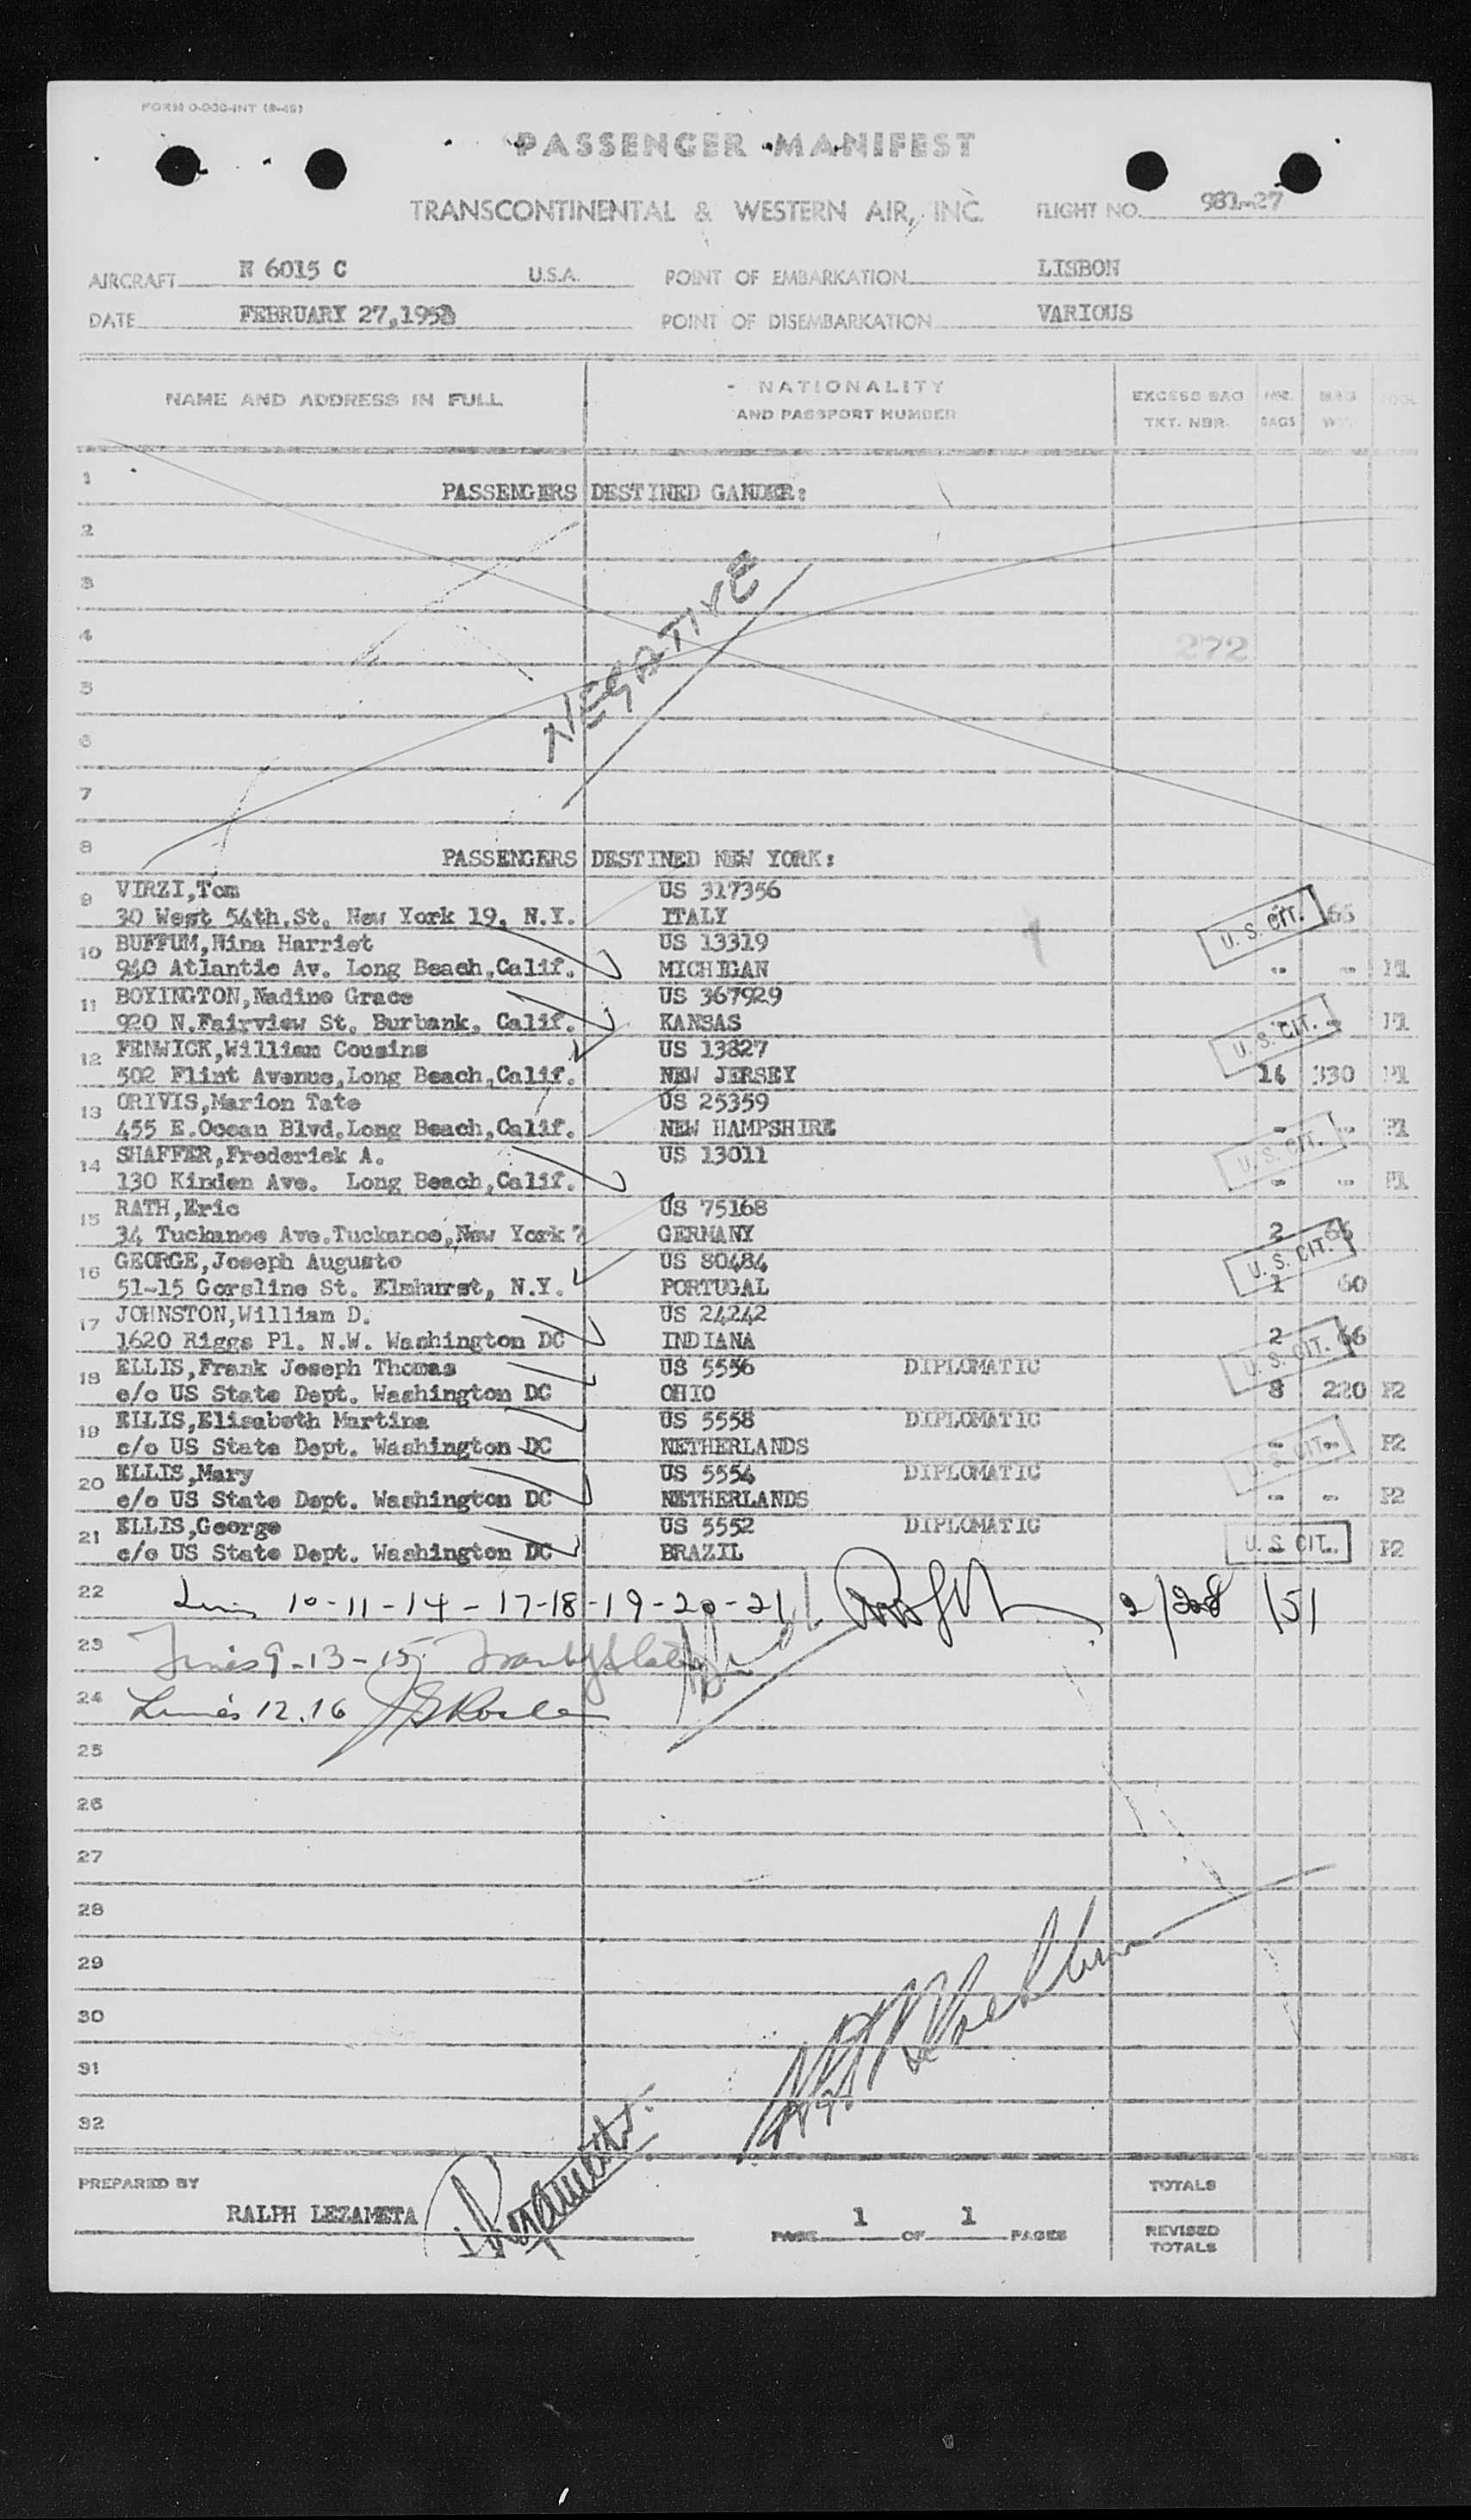 FORM O-000-INT (9-49)
PASSENGER MANIFEST
TRANSCONTINENTAL & WESTERN AIR, INC. FLIGHT NO. 981-27
AIRCRAFT N 6015 C U.S.A. POINT OF EMBARKATION LISBON
DATE FEBRUARY 27,195 POINT OF DISEMBARKATION VARIOUS
NAME AND ADDRESS IN FULL NATIONALITY AND PASSPORT NUMBER EXCESS BAG TKT. NBR. BAGS
1 PASSENGERS DESTINED GANDER:
2
3
4 272
5
NEGATIVE
6
7
8 PASSENGERS DESTINED NEW YORK:
9 VIRZI,Tom US 317356
30 West 54th.St. New York 19, N.Y. ITALY U. S. CIT.
10 BUFFUM,Nina Harriet US 13319
940 Atlantic Av. Long Beach,Calif. MICHIGAN -- -- P1
11 BOYINGTON,Nadine Grace US 367929
920 N.Fairview St. Burbank, Calif. KANSAS U. S. CIT. P1
12 FENWICK,William Cousins US 13827
502 Flint Avenue,Long Beach,Calif. NEW JERSEY 16 330 P1
13 ORIVIS,Marion Tate US 25359
455 E.Ocean Blvd.Long Beach,Calif. NEW HAMPSHIRE -- -- P1
14 SHAFFER,Frederick A. US 13011 U. S. CIT.
130 Kinden Ave. Long Beach,Calif. -- -- P1
15 RATH,Eric US 75168
34 Tuckanoe Ave.Tuckanoe,New York 7 GERMANY 2 66
16 GEORGE,Joseph Augusto US 80484 U. S. CIT.
51-15 Gorsline St. Elmhurst, N.Y. PORTUGAL 1 60
17 JOHNSTON,William D. US 24242
1620 Riggs Pl. N.W. Washington DC INDIANA 2 66
18 ELLIS,Frank Joseph Thomas US 5556 DIPLOMATIC U. S. CIT.
c/o US State Dept. Washington DC OHIO 8 220 P2
19 ELLIS,Elisabeth Martina US 5558 DIPLOMATIC
c/o US State Dept. Washington DC NETHERLANDS -- -- P2
20 ELLIS,Mary US 5554 DIPLOMATIC U. S. CIT.
c/o US State Dept. Washington DC NETHERLANDS -- -- P2
21 ELLIS,George US 5552 DIPLOMATIC
c/o US State Dept. Washington DC BRAZIL U. S. CIT. P2
22 10-11-14-17-18-19-20-21 2/28/51
23 Lines 9-13-15
24 Lines 12.16
25
26
27
28
29
30
31
32
PREPARED BY TOTALS
RALPH LEZAMETA PAGE 1 OF 1 PAGES
REVISED TOTALS